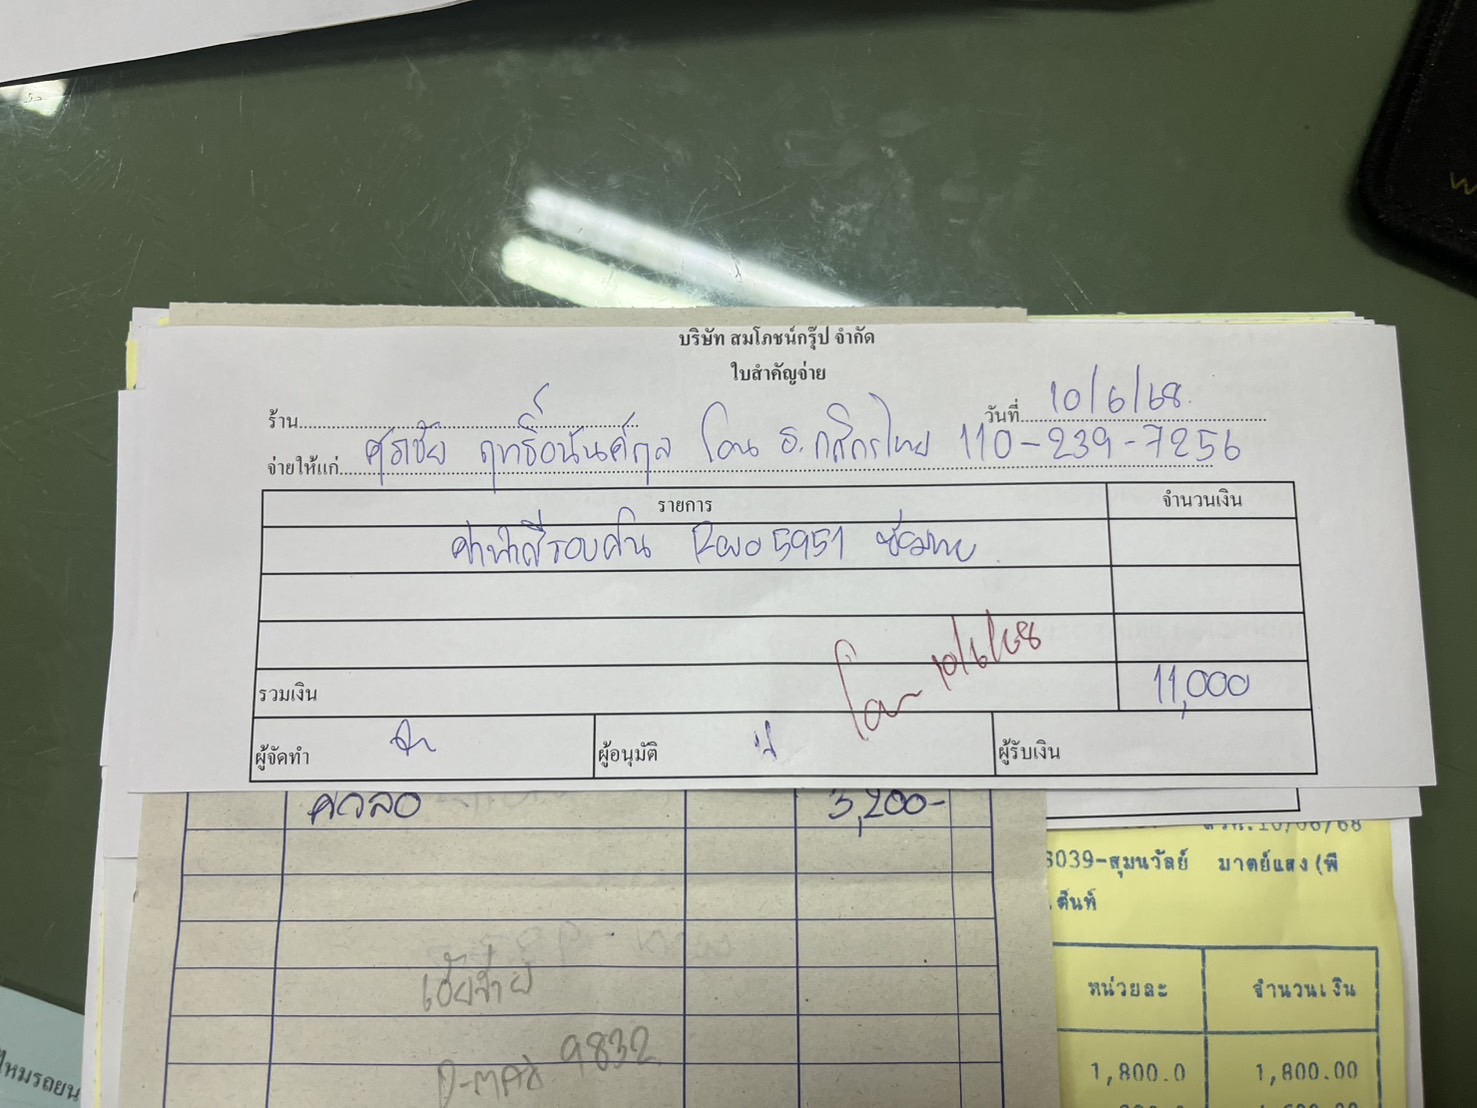 บริษัท สมโภชน์กรุ๊ป จำกัด
ใบสำคัญจ่าย
ร้าน
วันที่ 10/6/68
จ่ายให้แก่ ศุภชัย ฤทธิ์อนันค์กุล โอน ธ.กสิกรไทย 110-239-7256
รายการ จำนวนเงิน
ค่าทำสีรอบคัน Revo 5951 ซ่อมขาย
โอน 10/6/68
รวมเงิน 11,000
ผู้จัดทำ ผู้อนุมัติ ผู้รับเงิน
3,200-
10/06/68
3039-สุมนวัลย์ มาตย์แสง(พี
.ต้นท์
เฮียจ่าย
D-MAX 9832
หน่วยละ จำนวนเงิน
1,800.0 1,800.00
ไหมรถยน